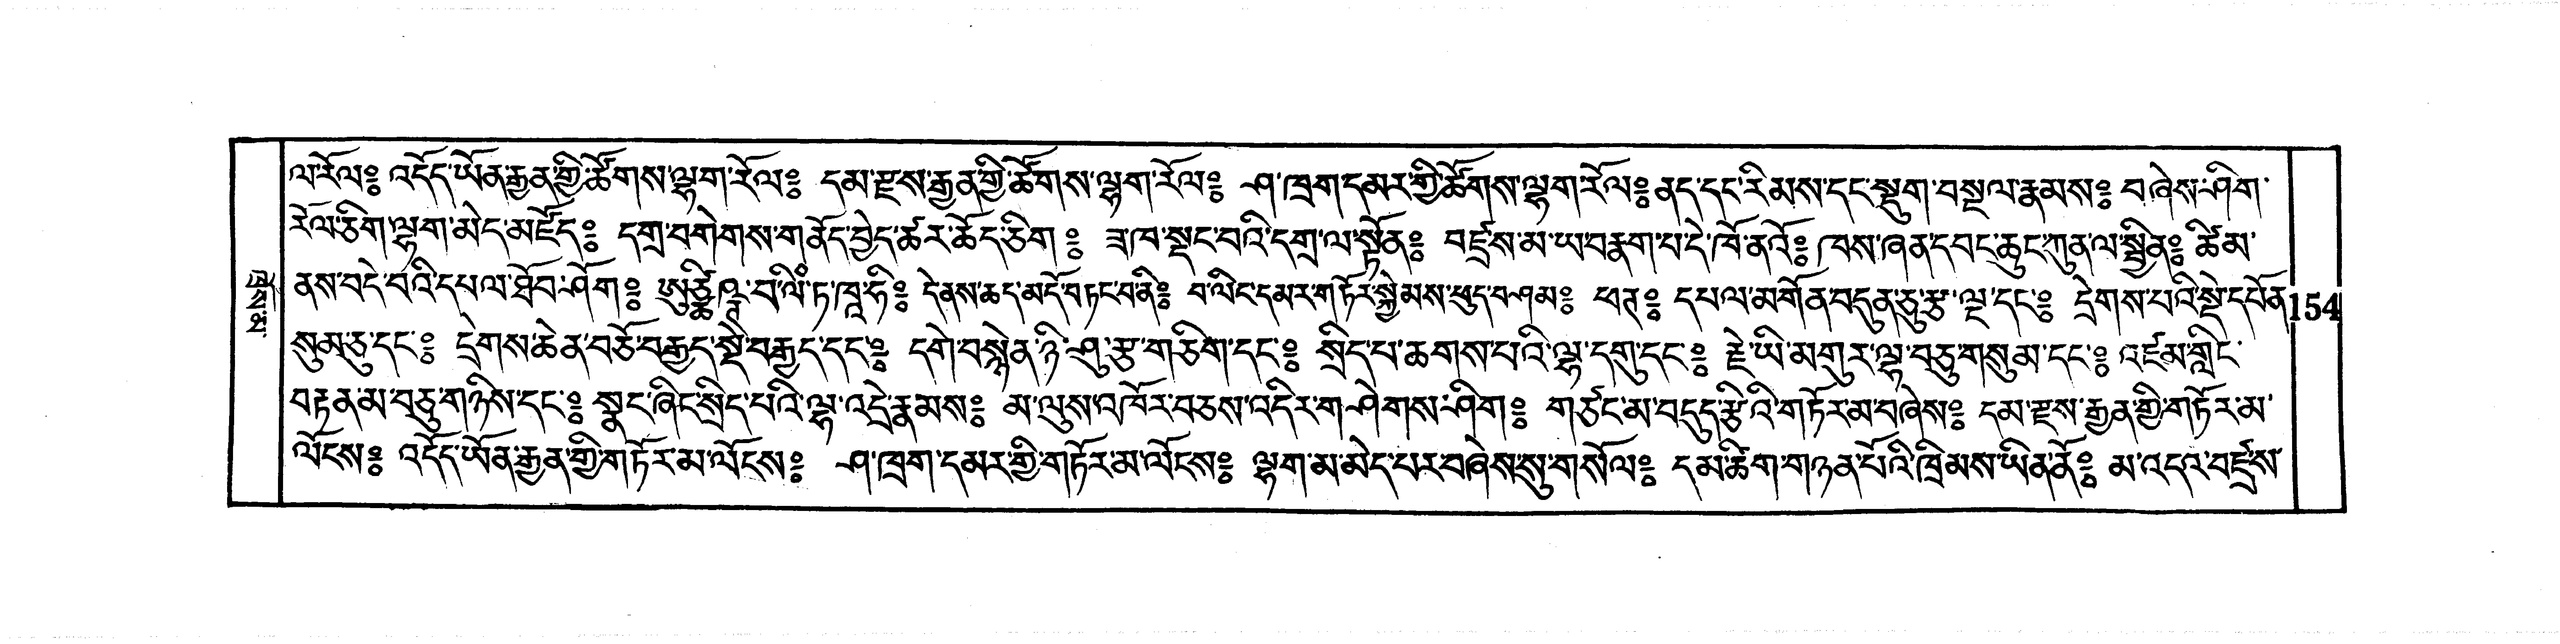 ལ་རོལ༔ འདོད་ཡོན་རྒྱན་གྱི་ཚོགས་ལྷག་རོལ༔ དམ་རྫས་རྒྱན་གྱི་ཚོགས་ལྷག་རོལ༔ ཤ་ཁྲག་དམར་གྱི་ཚོགས་ལྷག་རོལ༔ ནད་དང་རིམས་དང་སྡུག་བསྔལ་རྣམས༔ བཞེས་ཤིག་
རོལ་ཅིག་ལྷག་མེད་མཛོད༔ དགྲ་བགེགས་གནོད་བྱེད་ཚར་ཆོད་ཅིག༔ ཟླ་ཁ་སྡང་བའི་དགྲ་ལ་སྟོན༔ བརྫས་མ་ཡ་བརྣག་པ་དེ་ཁོ་ནའོ༔ ཁས་ཞན་དབང་ཆུང་ཀུན་ལ་སྦྱིན༔ ཚིམ་
ནས་བདེ་བའི་དཔལ་ཐོབ་ཤོག༔ ཨུཙྪིཥྚ་བ་ལིཾ་ཏ་ཁཱ་ཧི༔ དེནས་ཆད་མདོ་བཏང་བནི༔ བ་ལིང་དམར་གཏོར་སྐྱེམས་ཕུད་བཤམ༔ ཕཊ༔ དཔལ་མགོན་བདུན་ཅུ་རྩ་ལྔ་དང༔ དྲེགས་པའི་སྡེ་དཔོན་
སུམ་ཅུ་དང༔ དྲེགས་ཆེན་བཅོ་བརྒྱད་སྡེ་བརྒྱད་དང༔ དགེ་བསྙེན་ཉི་ཤུ་རྩ་གཅིག་དང༔ སྲིད་པ་ཆགས་པའི་ལྷ་དགུ་དང༔ རྗེ་ཡི་མགུར་ལྷ་བཅུ་གསུམ་དང༔ འཛམ་གླིང་
བརྟན་མ་བཅུ་གཉིས་དང༔ སྣང་ཞིང་སྲིད་པའི་ལྷ་འདྲེ་རྣམས༔ མ་ལུས་འཁོར་བཅས་འདིར་གཤེགས་ཤིག༔ གཙང་མ་བདུད་རྩིའི་གཏོར་མ་བཞེས༔ དམ་རྫས་རྒྱན་གྱི་གཏོར་མ་
ལོངས༔ འདོད་ཡོན་རྒྱན་གྱི་གཏོར་མ་ལོངས༔ ཤ་ཁྲག་དམར་གྱི་གཏོར་མ་ལོངས༔ ལྷག་མ་མེད་པར་བཞེས་སུ་གསོལ༔ དམ་ཚིག་གཉན་པོའི་ཁྲིམས་ཡིན་ནོ༔ མ་འདའ་བརྫས་
154